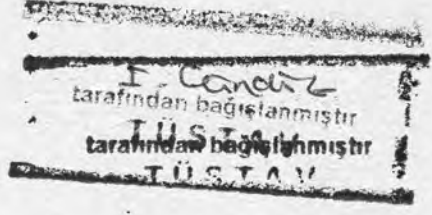 tarafından bağışlanmıştır
TÜSTAV
tarafından bağışlanmıştır
TÜSTAV